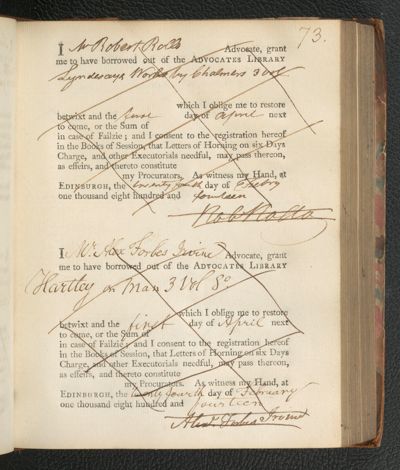 73.
I Mr Robert Rolls Advocate, grant
me to have borrowed out of the ADVOCATES LIBRARY
Lyndesays Works by Chalmers 3 vols
which I oblige me to restore
betwixt and the first day of April next
to come, or the Sum of
in case of Failzie; and I consent to the registration hereof
in the Books of Session, that Letters of Horning on six Days
Charge, and other Executorials needful, may pass thereon,
as effeirs, and thereto constitute
my Procurators. As witness my Hand, at
EDINBURGH, the twenty fourth day of Febry
one thousand eight hundred and fourteen
Rob Rolls
I Mr Alex Forbes Irvine Advocate, grant
me to have borrowed out of the ADVOCATES LIBRARY
Hartley on Man 3 Vol 8o
which I oblige me to restore
betwixt and the first day of April next
to come, or the Sum of
in case of Failzie; and I consent to the registration hereof
in the Books of Session, that Letters of Horning on six Days
Charge, and other Executorials needful, may pass thereon,
as effeirs, and thereto constitute
my Procurators. As witness my Hand, at
EDINBURGH, the twenty fourth day of February
one thousand eight hundred and fourteen
Alexr Forbes Irvine